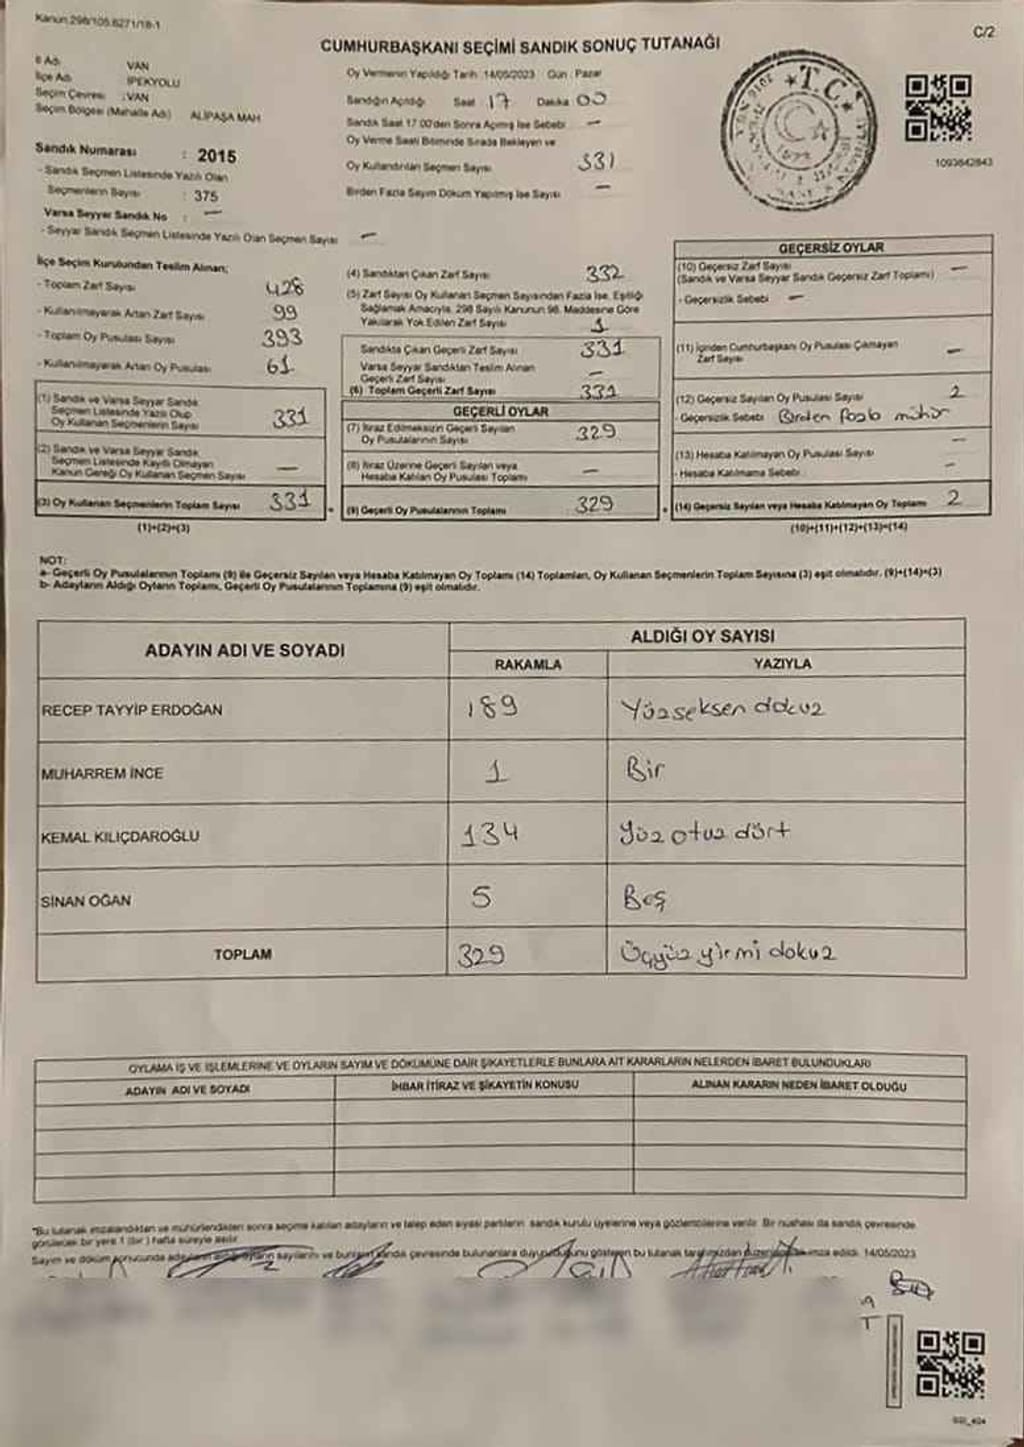 Kanun 298/105.6271/18-1
C/2
CUMHURBAŞKANI SEÇİMİ SANDIK SONUÇ TUTANAĞI
İl Adı VAN
İlçe Adı İPEKYOLU
Seçim Çevresi : VAN
Seçim Bölgesi (Mahalle Adı) ALİPAŞA MAH
Sandık Numarası : 2015
- Sandık Seçmen Listesinde Yazılı Olan
Seçmenlerin Sayısı : 375
Varsa Seyyar Sandık No : —
- Seyyar Sandık Seçmen Listesinde Yazılı Olan Seçmen Sayısı —
Oy Vermenin Yapıldığı Tarih: 14/05/2023 Gün : Pazar
Sandığın Açıldığı Saat 17 Dakika 00
Sandık Saat 17.00'den Sonra Açılmış İse Sebebi —
Oy Verme Saati Bitiminde Sırada Bekleyen ve
Oy Kullandırılan Seçmen Sayısı 331
Birden Fazla Sayım Döküm Yapılmış İse Sayısı —
T.C.
1093642843
İlçe Seçim Kurulundan Teslim Alınan;
- Toplam Zarf Sayısı 428
- Kullanılmayarak Artan Zarf Sayısı 99
- Toplam Oy Pusulası Sayısı 393
- Kullanılmayarak Artan Oy Pusulası 61
(1) Sandık ve Varsa Seyyar Sandık
Seçmen Listesinde Yazılı Olup
Oy Kullanan Seçmenlerin Sayısı 331
(2) Sandık ve Varsa Seyyar Sandık
Seçmen Listesinde Kayıtlı Olmayan
Kanun Gereği Oy Kullanan Seçmen Sayısı —
(3) Oy Kullanan Seçmenlerin Toplam Sayısı 331
(1)+(2)=(3)
(4) Sandıktan Çıkan Zarf Sayısı 332
(5) Zarf Sayısı Oy Kullanan Seçmen Sayısından Fazla İse, Eşitliği
Sağlamak Amacıyla, 298 Sayılı Kanunun 98. Maddesine Göre
Yakılarak Yok Edilen Zarf Sayısı 1
Sandıkta Çıkan Geçerli Zarf Sayısı 331
Varsa Seyyar Sandıktan Teslim Alınan
Geçerli Zarf Sayısı —
(6) Toplam Geçerli Zarf Sayısı 331
GEÇERLİ OYLAR
(7) İtiraz Edilmeksizin Geçerli Sayılan
Oy Pusulalarının Sayısı 329
(8) İtiraz Üzerine Geçerli Sayılan veya
Hesaba Katılan Oy Pusulası Toplamı —
(9) Geçerli Oy Pusulalarının Toplamı 329
GEÇERSİZ OYLAR
(10) Geçersiz Zarf Sayısı —
(Sandık ve Varsa Seyyar Sandık Geçersiz Zarf Toplamı)
- Geçersizlik Sebebi —
(11) İçinden Cumhurbaşkanı Oy Pusulası Çıkmayan
Zarf Sayısı —
(12) Geçersiz Sayılan Oy Pusulası Sayısı 2
- Geçersizlik Sebebi Birden fazla mühür
(13) Hesaba Katılmayan Oy Pusulası Sayısı —
- Hesaba Katılmama Sebebi —
(14) Geçersiz Sayılan veya Hesaba Katılmayan Oy Toplamı 2
(10)+(11)+(12)+(13)=(14)
NOT:
a- Geçerli Oy Pusulalarının Toplamı (9) ile Geçersiz Sayılan veya Hesaba Katılmayan Oy Toplamı (14) Toplamları, Oy Kullanan Seçmenlerin Toplam Sayısına (3) eşit olmalıdır. (9)+(14)=(3)
b- Adayların Aldığı Oyların Toplamı, Geçerli Oy Pusulalarının Toplamına (9) eşit olmalıdır.
ADAYIN ADI VE SOYADI ALDIĞI OY SAYISI
RAKAMLA YAZIYLA
RECEP TAYYİP ERDOĞAN 189 Yüzseksen dokuz
MUHARREM İNCE 1 Bir
KEMAL KILIÇDAROĞLU 134 Yüz otuz dört
SİNAN OĞAN 5 Beş
TOPLAM 329 Üçyüz yirmi dokuz
OYLAMA İŞ VE İŞLEMLERİNE VE OYLARIN SAYIM VE DÖKÜMÜNE DAİR ŞİKAYETLERLE BUNLARA AİT KARARLARIN NELERDEN İBARET BULUNDUKLARI
ADAYIN ADI VE SOYADI İHBAR İTİRAZ VE ŞİKAYETİN KONUSU ALINAN KARARIN NEDEN İBARET OLDUĞU
*Bu tutanak imzalandıktan ve mühürlendikten sonra seçime katılan adayların ve talep eden siyasi partilerin sandık kurulu üyelerine veya gözlemcilerine verilir. Bir nüshası da sandık çevresinde
görülecek bir yere 1 (bir) hafta süreyle asılır.
Sayım ve döküm sonucunda adayların aldığı oyların sayılarını ve bunların sandık çevresinde bulunanlara duyurulduğunu gösteren bu tutanak tarafımızdan düzenlenip imza edildi. 14/05/2023